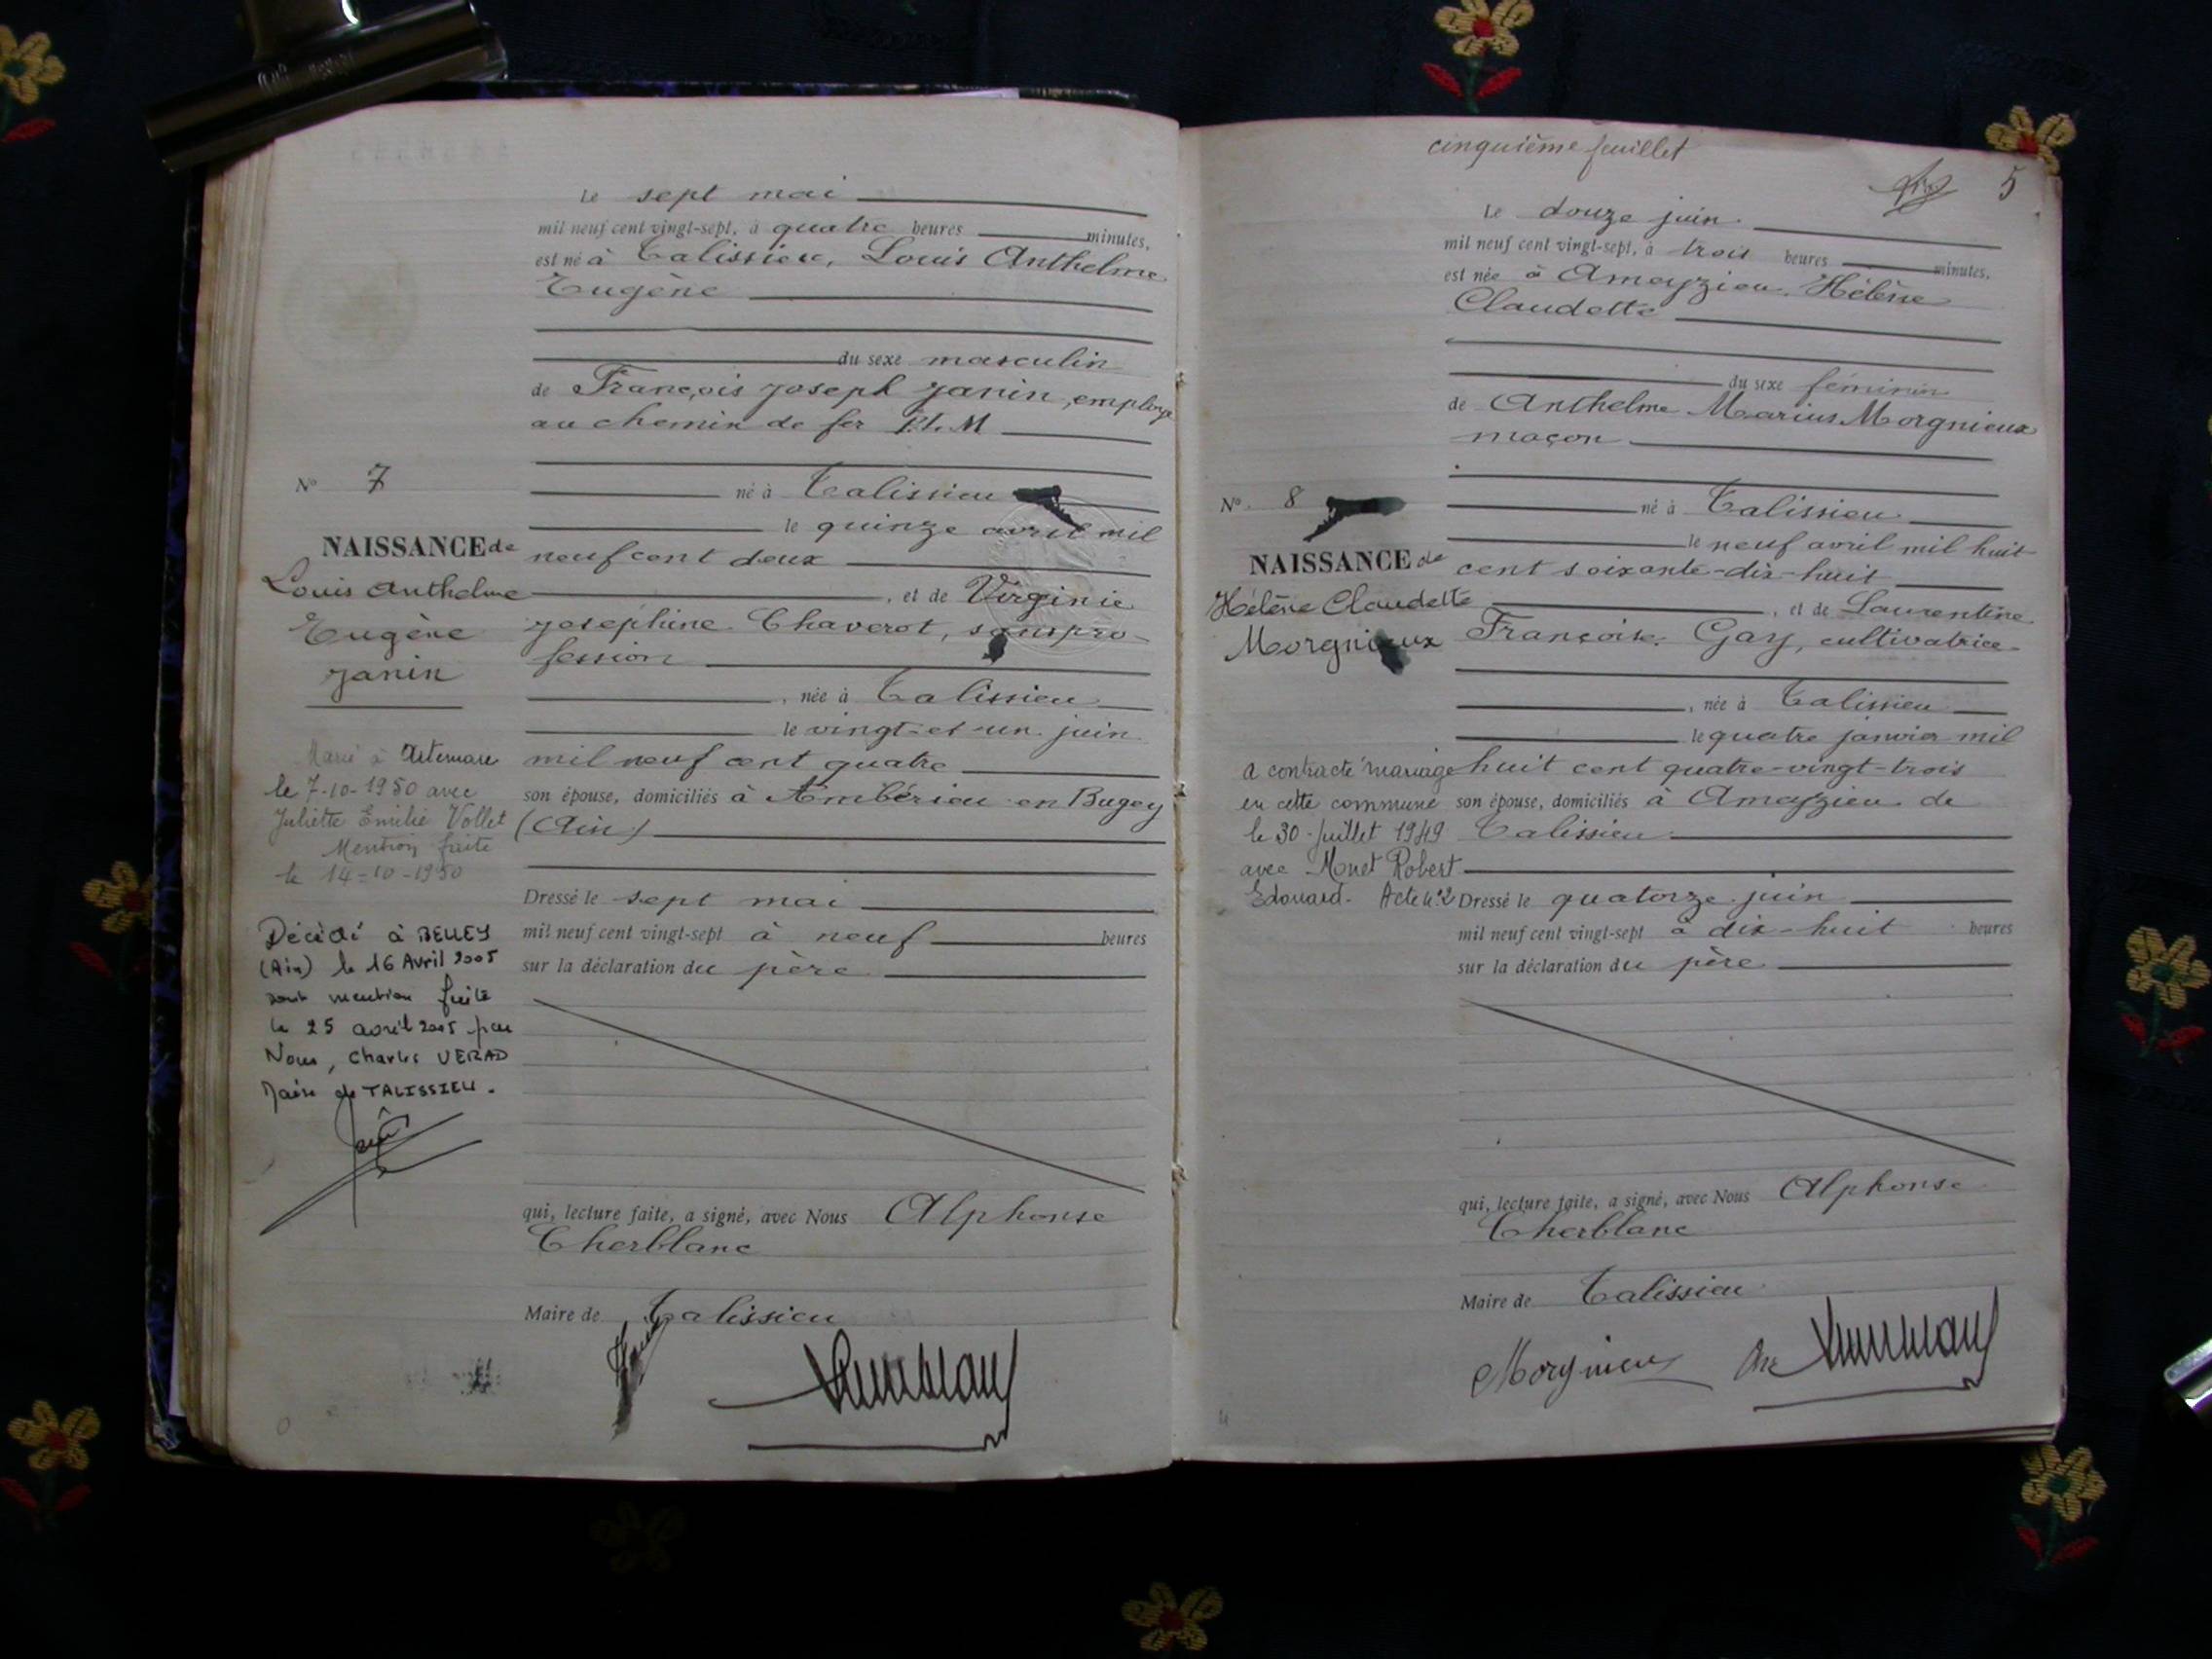 Le sept mai
mil neuf cent vingt-sept, à quatre heures minutes,
est né à Talissieu, Louis Anthelme
Eugène
du sexe masculin
de François Joseph Janin, employé
au chemin de fer P.L.M
N° 7
né à Talissieu
le quinze avril mil
NAISSANCE de
neuf cent deux
Louis Anthelme
, et de Virginie
Eugène
Josephine Chaverot, sans pro-
Janin
fession
, née à Talissieu
le vingt-et-un juin
mil neuf cent quatre
son épouse, domiciliés à Ambérieu-en-Bugey
(Ain)
Marié à Artemare
le 7-10-1950 avec
Juliette Emilie Vollet
Mention faite
le 14-10-1950
Dressé le sept mai
mil neuf cent vingt-sept à neuf heures
sur la déclaration du père
Décédé à BELLEY
(Ain) le 16 Avril 2005
dont mention faite
le 25 avril 2005 par
Nous, Charles VERAD
Maire de TALISSIEU.
qui, lecture faite, a signé, avec Nous Alphonse
Therblanc
Maire de Talissieu
cinquième feuillet
5
Le douze juin
mil neuf cent vingt-sept, à trois heures minutes,
est née à Ameyzieu Hélène
Claudette
du sexe féminin
de Anthelme Marius Morgnieux
maçon
N° 8
né à Talissieu
le neuf avril mil huit
NAISSANCE de
cent soixante-dix-huit
Hélène Claudette
, et de Laurentine
Morgnieux
Françoise Gay, cultivatrice
, née à Talissieu
le quatre janvier mil
huit cent quatre-vingt-trois
son épouse, domiciliés à Ameyzieu de
Talissieu
a contracté mariage
en cette commune
le 30 juillet 1949
avec Monet Robert
Edouard. Acte n°2
Dressé le quatorze juin
mil neuf cent vingt-sept à dix-huit heures
sur la déclaration du père
qui, lecture faite, a signé, avec Nous Alphonse
Therblanc
Maire de Talissieu
Morgnieux